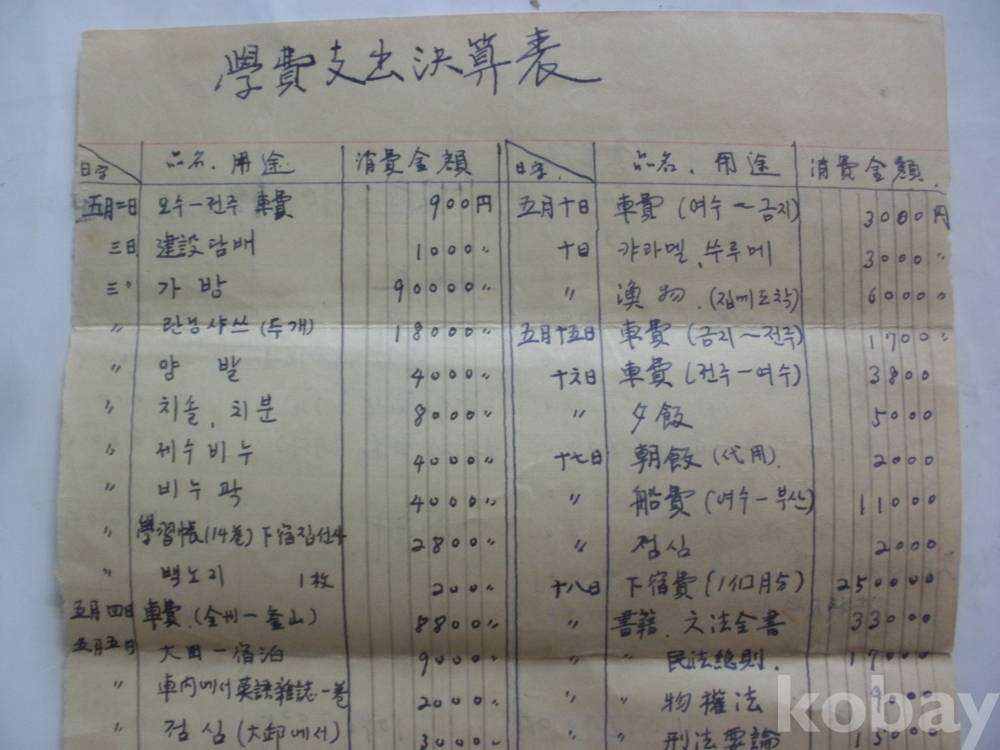 學費支出決算表
日字 品名、用途 消費金額
五月二日 오수-전주 車費 900円
三日 建設담배 1000〃
三〃 가방 90000〃
〃 란닝샤쓰(두개) 18000〃
〃 양발 4000〃
〃 치솔、치분 8000〃
〃 세수비누 4000〃
〃 비누곽 4000〃
〃 學習帳(14卷) 下宿집선사 2800〃
〃 백노지 1枚 200〃
五月四日 車費(全州-釜山) 8800〃
五月五日 大田-宿泊 9000
〃 車內에서 英語雜誌一卷 2000〃
〃 점심(大邱에서) 3000〃
日字 品名、用途 消費金額
五月十日 車費(여수~금지) 3000円
十日 캬라멜、쑤루메 3000〃
〃 漁物、(집에도착) 6000〃
五月十五日 車費(금지~전주) 1700〃
十六日 車費(전주-여수) 3800
〃 夕飯 5000
十七日 朝飯(代用) 2000
〃 船費(여수-부산) 11000
〃 점심 2000
十八日 下宿費(1個月分) 250000
〃 書籍、六法全書 33000
〃 〃 民法總則、 17000
〃 〃 物權法 9000
〃 〃 刑法要論 15000
kobay